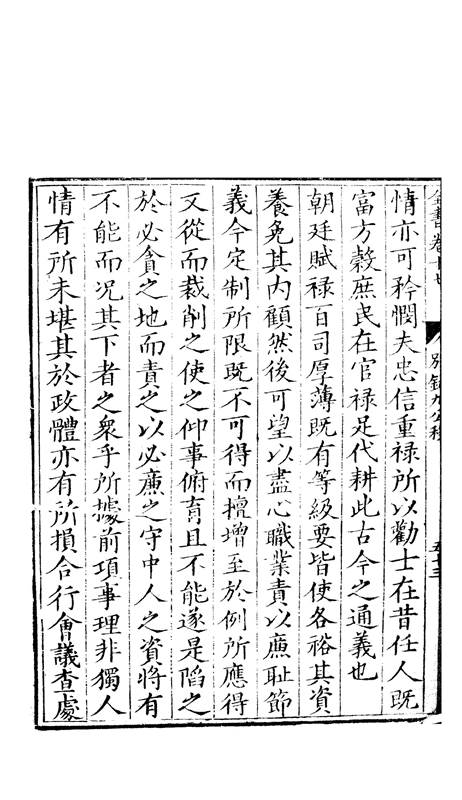 全書卷十七
別錄九公移
五十三
情亦可矜憫夫忠信重祿所以勸士在昔任人既
富方穀庶民在官祿足代耕此古今之通義也
朝廷賦祿百司厚薄既有等級要皆使各裕其資
養免其內顧然後可望以盡心職業責以廉恥節
義今定制所限既不可得而擅增至於例所應得
又從而裁削之使之仰事俯育且不能遂是陷之
於必貪之地而責之以必廉之守中人之資將有
不能而況其下者之衆乎所據前項事理非獨人
情有所未堪其於政體亦有所損合行會議查處